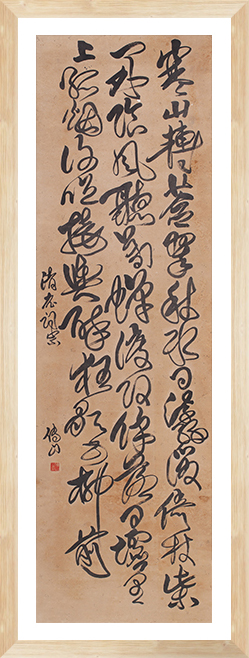 寒山轉蒼翠秋水日潺湲倚杖柴
門外臨風聽暮蟬渡頭餘落日墟里
上孤煙復值接輿醉狂歌五柳前
傅山